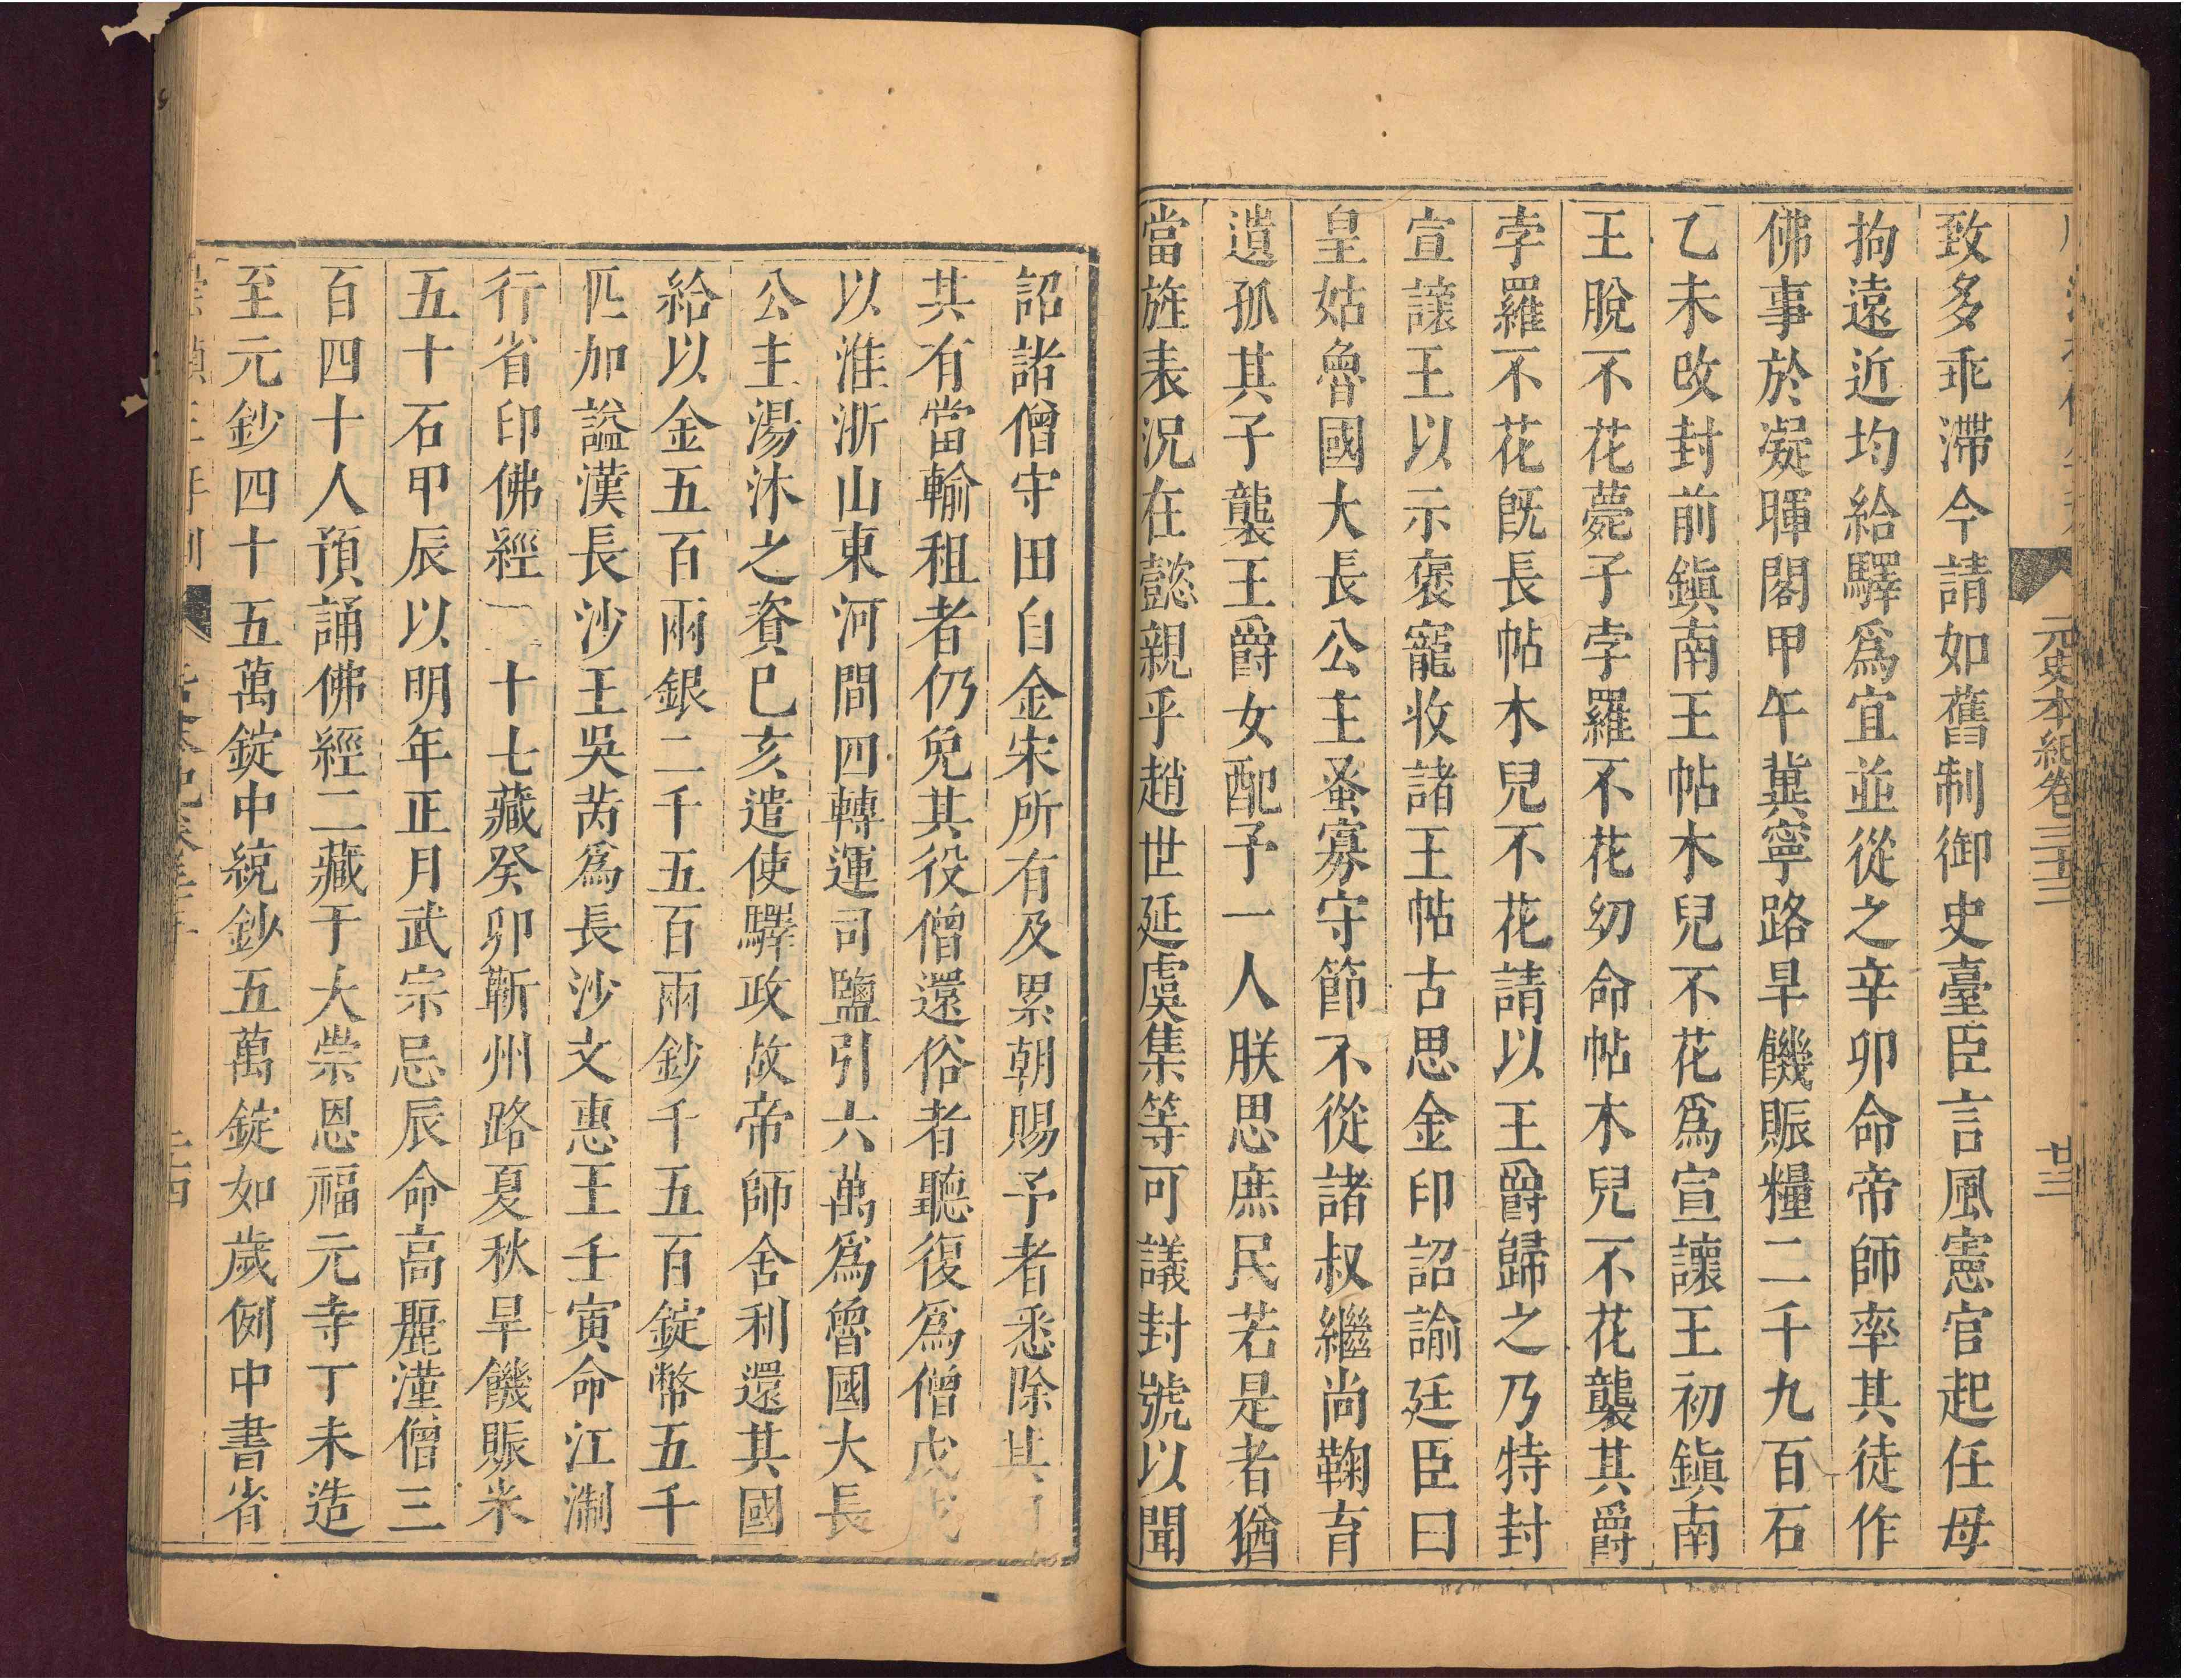 元史本紀卷三十三
廿三
致多乖滯今請如舊制御史臺臣言風憲官起任毋
拘遠近均給驛爲宜並從之辛卯命帝師率其徒作
佛事於凝暉閣甲午冀寧路旱饑賑糧二千九百石
乙未改封前鎭南王帖木兒不花爲宣讓王初鎭南
王脫不花薨子孛羅不花幼命帖木兒不花襲其爵
孛羅不花旣長帖木兒不花請以王爵歸之乃特封
宣讓王以示褒寵收諸王帖古思金印詔諭廷臣曰
皇姑魯國大長公主蚤寡守節不從諸叔繼尚鞠育
遺孤其子襲王爵女配予一人朕思庶民若是者猶
當旌表況在懿親乎趙世延虞集等可議封號以聞
詔諸僧寺田自金宋所有及累朝賜予者悉除其
其有當輸租者仍免其役僧還俗者聽復爲僧戊戌
以淮浙山東河間四轉運司鹽引六萬爲魯國大長
公主湯沐之資已亥遣使驛政故帝師舍利還其國
給以金五百兩銀二千五百兩鈔千五百錠幣五千
匹加謚漢長沙王吳芮爲長沙文惠王壬寅命江淛
行省印佛經二十七藏癸卯蘄州路夏秋旱饑賑米
五十石甲辰以明年正月武宗忌辰命高麗漢僧三
百四十人預誦佛經二藏于大崇恩福元寺丁未造
至元鈔四十五萬錠中統鈔五萬錠如歲例中書省